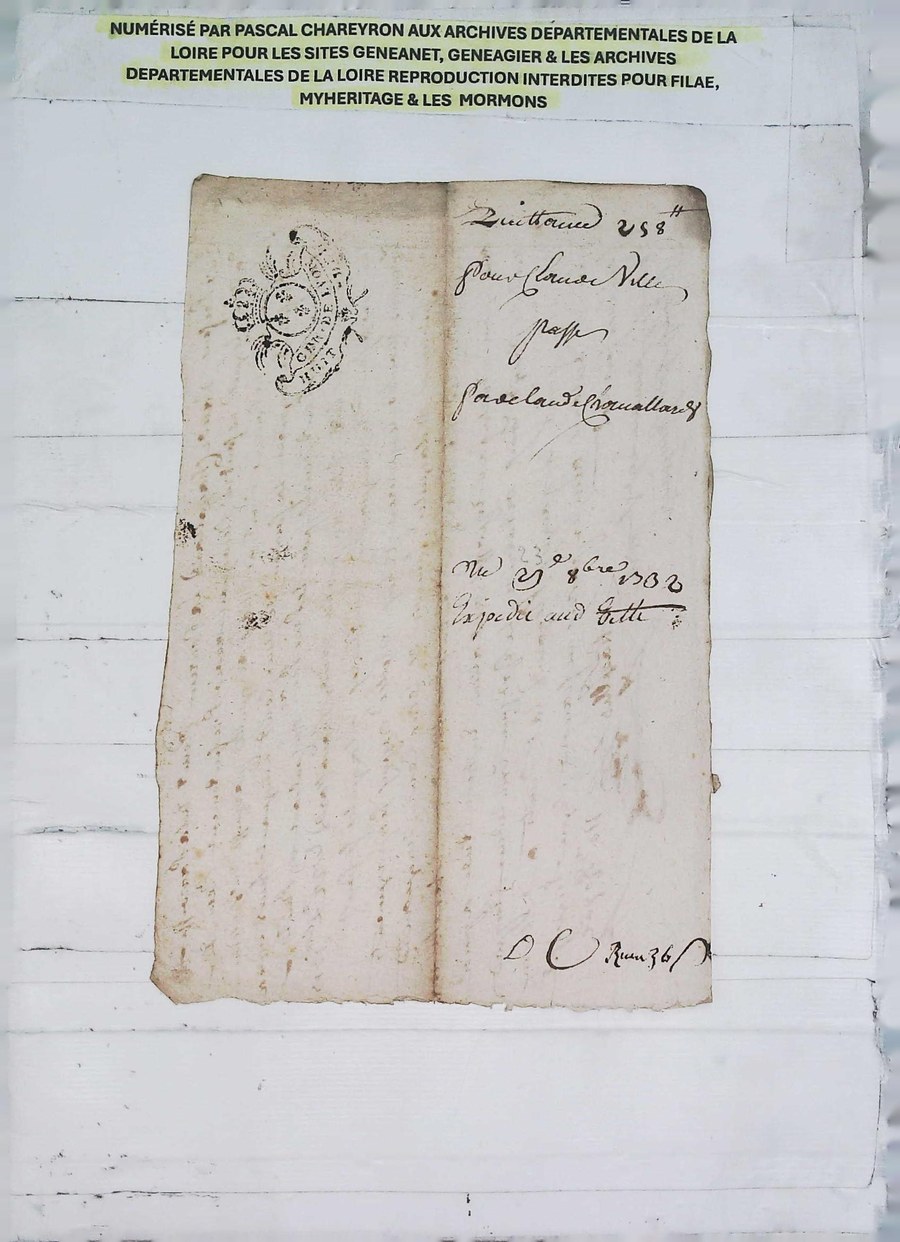 NUMÉRISÉ PAR PASCAL CHAREYRON AUX ARCHIVES DEPARTEMENTALES DE LA
LOIRE POUR LES SITES GENEANET, GENEAGIER & LES ARCHIVES
DEPARTEMENTALES DE LA LOIRE REPRODUCTION INTERDITES POUR FILAE,
MYHERITAGE & LES MORMONS
GEN DE LYON
HUIT
Quittance 258 ₶
pour Claude Ville
passé
par claude
Du 23 e 8bre 1732
Expedié aud Ville
D C